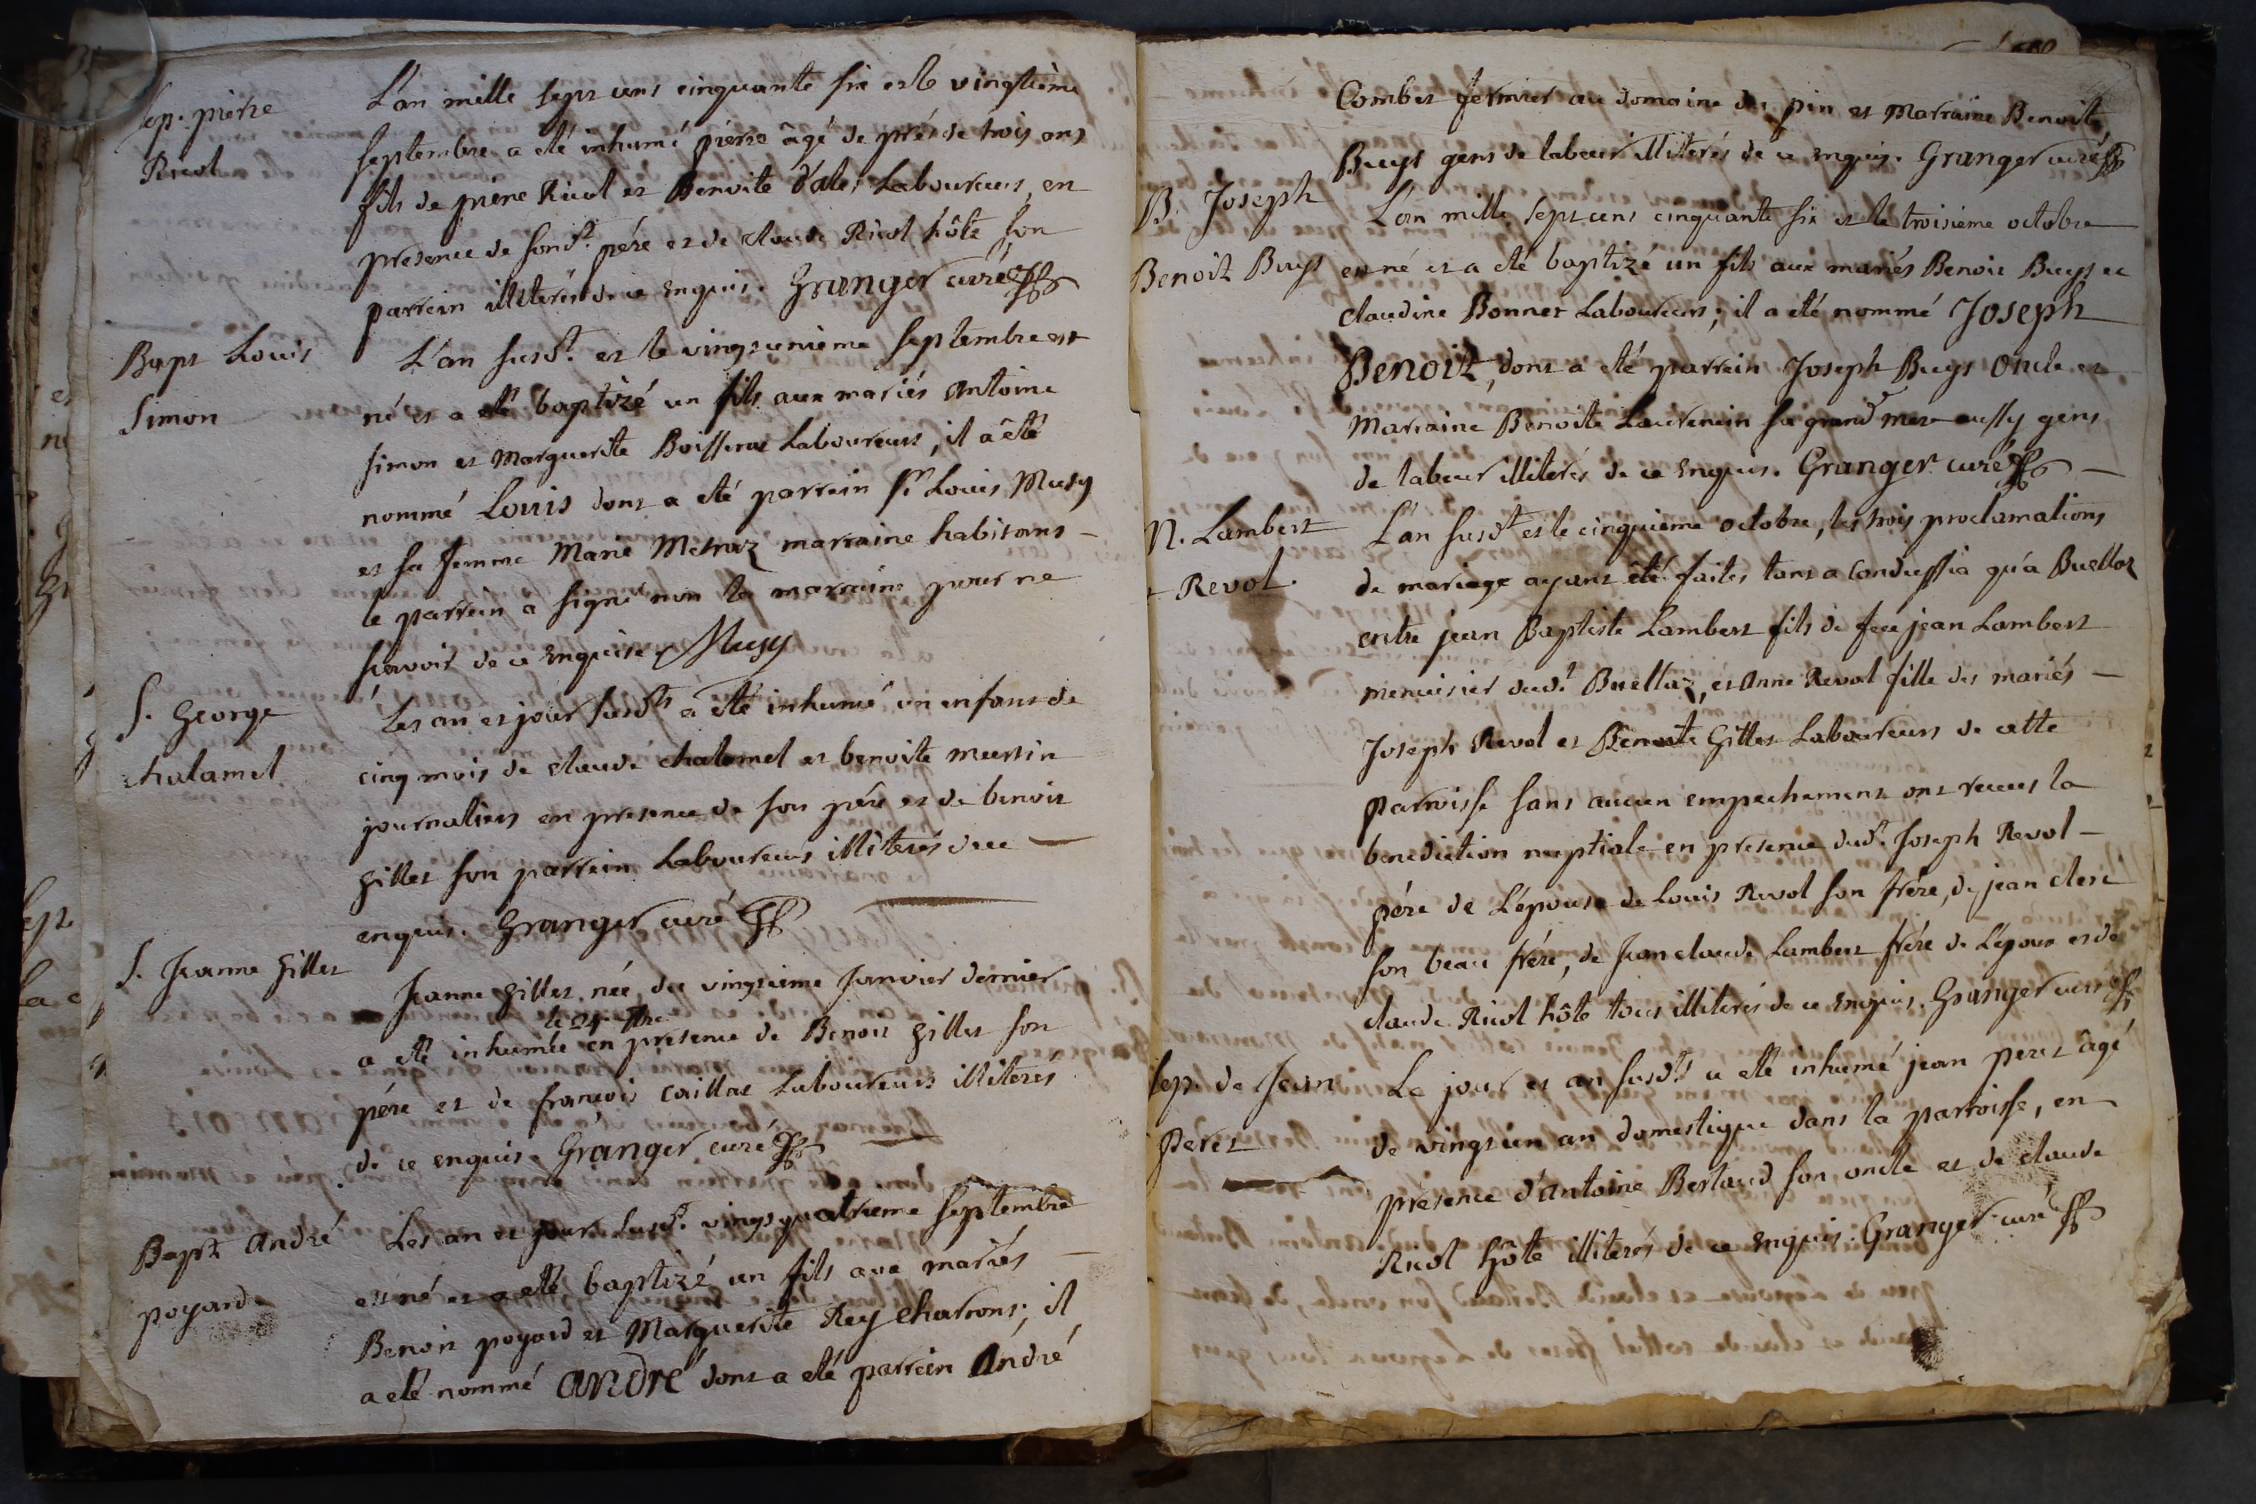 Sep. pierre
Ricol
L'an mille sept cens cinquante six et le vingtième
septembre a été inhumé pierre âgé de près de trois ans
fils de pierre Ricol et Benoite Laboureurs, en
presence de sond.t père et de claude Ricol hôte son
parrein illiterés de ce enquis. Granger curé
Bapt Louis
Simon
L'an susd.t et le vingtunieme septembre est
né et a eté baptizé un fils aux mariés antoine
simon et Marguerite Boisserat Laboureurs, il a eté
nommé Louis dont a eté parrein s.r Louis Musy
et sa femme Marie Metraz marraine habitans
le parrein a signé non la marraine pour ne
scavoir de ce enquise. Musy
S. George
chalamel
Les an et jour susd.ts a eté inhumé un enfant de
cinq mois de claude chalamel et benoite
journaliers en presence de son père et de benoit
gillet son parrein Laboureurs illiterés de ce
enquis. Granger curé
S. Jeanne gillet
Jeanne gillet née du vingtieme Janvier dernier
le 24 7bre
a eté inhumée en presence de Benoit gillet son
père et de françois caillat Laboureurs illiterés
de ce enquis. Granger curé
Bapt. andré
poyard
Les an et jour susd.t vingt quatrieme septembre
est né et a eté baptizé un fils aux mariés
Benoit poyard et Marguerite Rey charrons; il
a eté nommé andré dont a eté parrein André
Combet fermier au domaine du pin et Marraine Benoite
Buys gens de labeur illiterés de ce enquis. Granger curé
B. Joseph
Benoit Buys
L'an mille sept cens cinquante six et le troisieme octobre
est né et a eté baptizé un fils aux mariés Benoit Buys et
claudine Bonnet Laboureurs; il a eté nommé Joseph
Benoit, dont a eté parrein Joseph Buys oncle et
Marraine Benoite Laurencin sa grand mere aussy gens
de labeur illiterés de ce enquis. Granger curé
N. Lambert
+ Revol.
L'an susd.t et le cinquieme octobre, les trois proclamations
de mariage ayant été faites tant a Condeyssia qu'a Buellaz
entre jean Baptiste Lambert fils de feu jean Lambert
menuisier dud.t Buellaz, et anne Revol fille des mariés
Joseph Revol et Benoite Gillet Laboureurs de cette
parroisse sans aucun empechement ont receus la
benediction nuptiale en presence dud.t Joseph Revol
père de L'epouse de Louis Revol son frére, de jean clerc
son beau frére, de Jean claude Lambert frére de L'epoux et de
claude Ricol hôte tous illiterés de ce enquis. Granger curé
Sep. de Jean
Peret
Le jour et an susd.ts a eté inhumé jean peret âgé
de vingt un an domestique dans la parroisse, en
presence d'antoine Bertaud son oncle et de claude
Ricol hôte illiterés de ce enquis. Granger curé